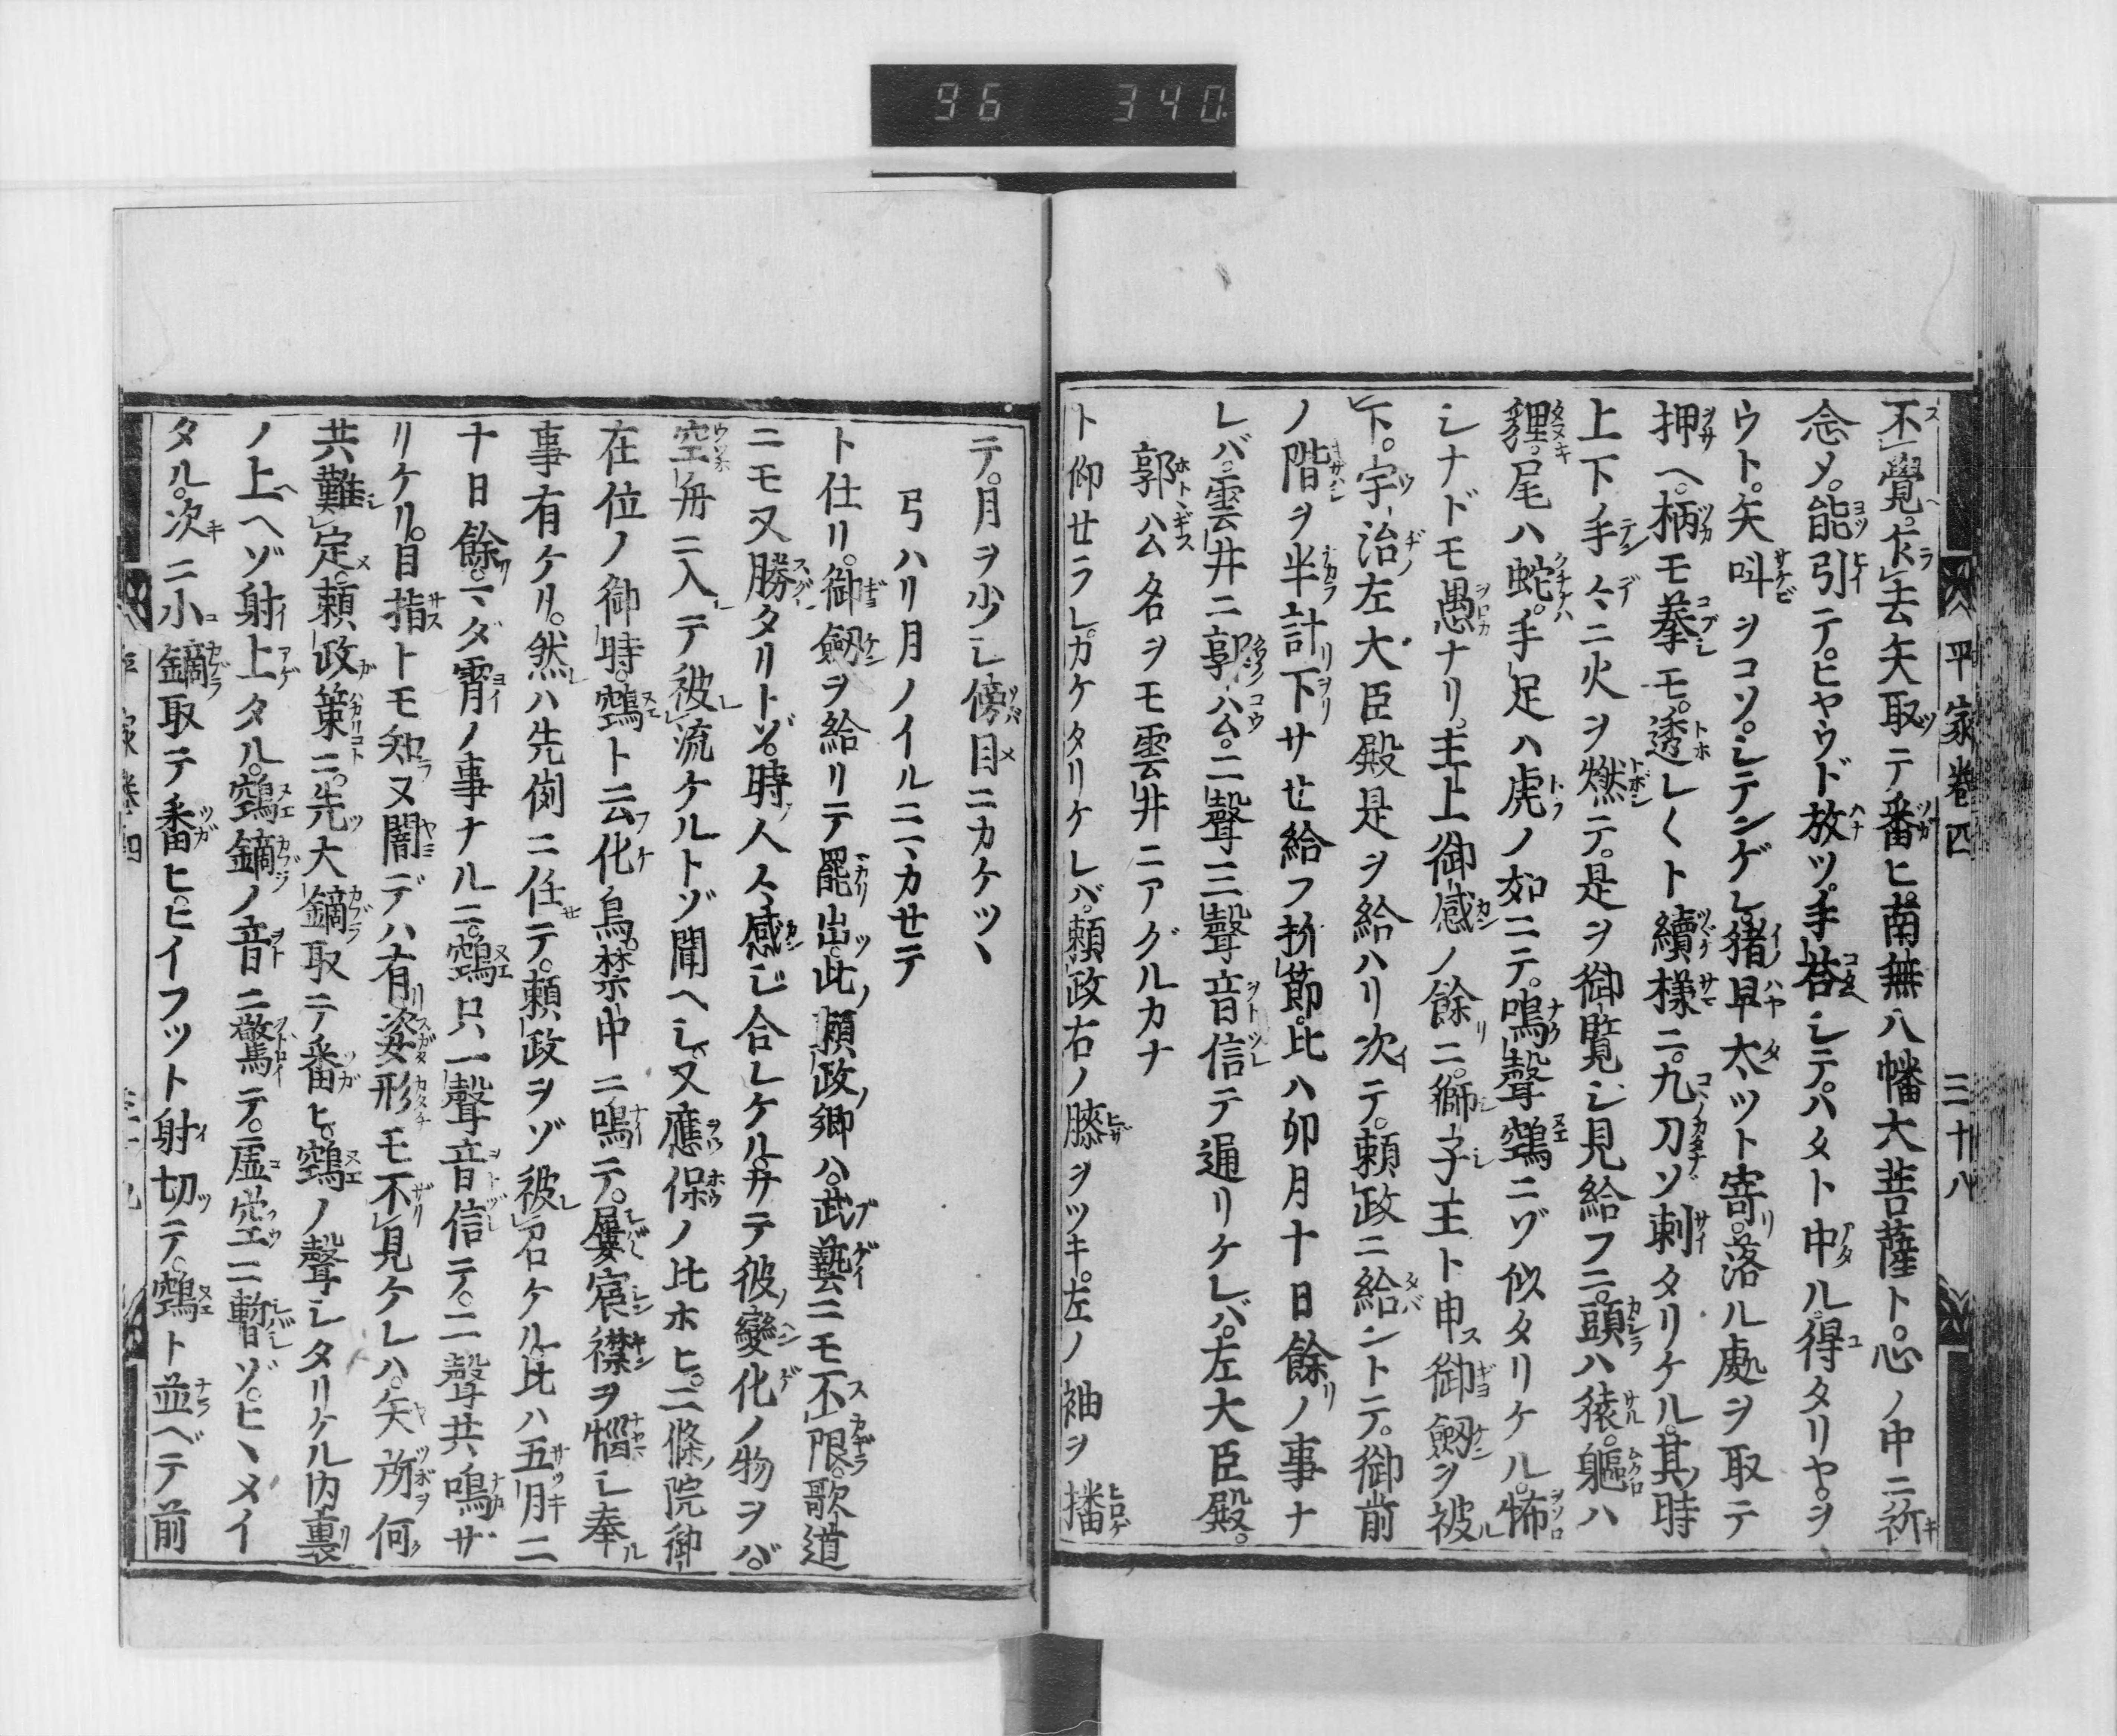 96 340
平家巻四 三十八
不覺。仄去矢取テ番ヒ。南無八幡大菩薩ト。心ノ中ニ祈
念メ。能引テ。ヒヤウド放ツ。手荅シテ。ハタト中ル。得タリヤ。ヲヽ
ウト。矢叫ヲコソ。シテンゲレ。猪早太ツト寄。落ル處ヲ取テ
押ヘ。柄モ拳モ。透レ〱ト續様ニ。九刀ソ刺タリケル。其時
上下手々ニ火ヲ燃テ。是ヲ御覧シ見給フニ。頭ハ猿。軀ハ
貍。尾ハ蛇。手足ハ虎ノ如ニテ。鳴聲鵼ニゾ似タリケル。怖
シナドモ愚ナリ。主上御感ノ餘ニ。獅子王ト申御劔ヲ被
下。宇治左大臣殿是ヲ給ハリ次テ。頼政ニ給ントテ。御前
ノ階ヲ半計下サせ給フ折節。比ハ卯月十日餘ノ事ナ
レバ。雲井ニ郭公。二聲三聲音信テ通リケレバ。左大臣殿。
郭公名ヲモ雲井ニアグルカナ
ト仰せラレカケタリケレバ。頼政右ノ膝ヲツキ。左ノ袖ヲ播
テ。月ヲ少シ傍目ニカケツヽ
弓ハリ月ノイルニマカせテ
ト仕リ。御劔ヲ給リテ罷出。此頼政卿ハ。武藝ニモ不限。歌道
ニモ又勝タリトゾ。時人々感ジ合レケル。弁テ彼變化ノ物ヲバ。
空舟ニ入テ被流ケルトゾ聞ヘシ。又應保ノ比ホヒ。二條院御
在位ノ御時。鵼ト云化鳥。禁中ニ鳴テ。屢宸襟ヲ惱シ奉
事有ケリ。然ハ先例ニ任テ。頼政ヲゾ被召ケル。比ハ五月二
十日餘。マダ霄ノ事ナルニ。鵼只一聲音信テ。二聲共鳴ザ
リケリ。目指トモ知ヌ闇デハ有。姿形モ不見ケレハ。矢所何
共難定。頼政策ニ。先大鏑取テ番ヒ。鵼ノ聲シタリケル内裏
ノ上ヘゾ射上タル。鵼鏑ノ音ニ驚テ。虚空ニ暫ゾ。ヒヽメイ
タル。次ニ小鏑取テ番ヒ。ヒイフツト射切テ。鵼ト並ベデ前